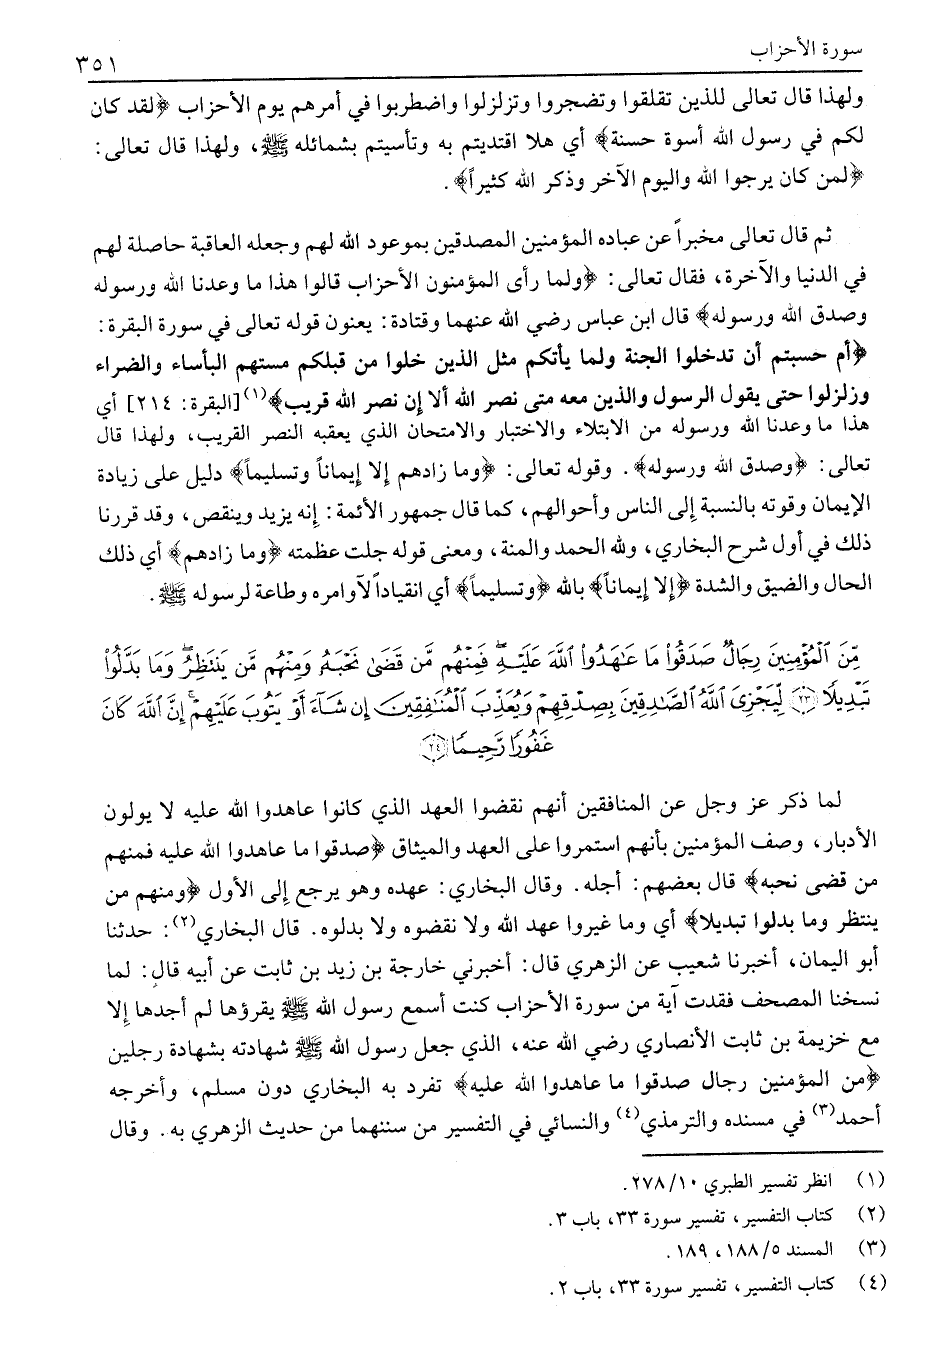 سورة الأحزاب
٣٥١
ولهذا قال تعالى للذين تقلقوا وتضجروا وتزلزلوا واضطربوا في أمرهم يوم الأحزاب ﴿لقد كان
لكم في رسول الله أسوة حسنة﴾ أي هلا اقتديتم به وتأسيتم بشمائله ﷺ، ولهذا قال تعالى:
﴿لمن كان يرجوا الله واليوم الآخر وذكر الله كثيراً﴾.
ثم قال تعالى مخبراً عن عباده المؤمنين المصدقين بموعود الله لهم وجعله العاقبة حاصلة لهم
في الدنيا والآخرة، فقال تعالى: ﴿ولما رأى المؤمنون الأحزاب قالوا هذا ما وعدنا الله ورسوله
وصدق الله ورسوله﴾ قال ابن عباس رضي الله عنهما وقتادة: يعنون قوله تعالى في سورة البقرة:
﴿أم حسبتم أن تدخلوا الجنة ولما يأتكم مثل الذين خلوا من قبلكم مستهم البأساء والضراء
وزلزلوا حتى يقول الرسول والذين معه متى نصر الله ألا إن نصر الله قريب﴾(١) [البقرة: ٢١٤] أي
هذا ما وعدنا الله ورسوله من الابتلاء والاختبار والامتحان الذي يعقبه النصر القريب، ولهذا قال
تعالى: ﴿وصدق الله ورسوله﴾. وقوله تعالى: ﴿وما زادهم إلا إيماناً وتسليماً﴾ دليل على زيادة
الإيمان وقوته بالنسبة إلى الناس وأحوالهم، كما قال جمهور الأئمة: إنه يزيد وينقص، وقد قررنا
ذلك في أول شرح البخاري، ولله الحمد والمنة، ومعنى قوله جلت عظمته ﴿وما زادهم﴾ أي ذلك
الحال والضيق والشدة ﴿إلا إيماناً﴾ بالله ﴿وتسليماً﴾ أي انقياداً لأوامره وطاعة لرسوله ﷺ.
مِّنَ ٱلْمُؤْمِنِينَ رِجَالٌ صَدَقُوا۟ مَا عَـٰهَدُوا۟ ٱللَّهَ عَلَيْهِ ۖ فَمِنْهُم مَّن قَضَىٰ نَحْبَهُۥ وَمِنْهُم مَّن يَنتَظِرُ ۖ وَمَا بَدَّلُوا۟
تَبْدِيلًا ﴿٢٣﴾ لِّيَجْزِىَ ٱللَّهُ ٱلصَّـٰدِقِينَ بِصِدْقِهِمْ وَيُعَذِّبَ ٱلْمُنَـٰفِقِينَ إِن شَآءَ أَوْ يَتُوبَ عَلَيْهِمْ ۚ إِنَّ ٱللَّهَ كَانَ
غَفُورًا رَّحِيمًا ﴿٢٤﴾
لما ذكر عز وجل عن المنافقين أنهم نقضوا العهد الذي كانوا عاهدوا الله عليه لا يولون
الأدبار، وصف المؤمنين بأنهم استمروا على العهد والميثاق ﴿صدقوا ما عاهدوا الله عليه فمنهم
من قضى نحبه﴾ قال بعضهم: أجله. وقال البخاري: عهده وهو يرجع إلى الأول ﴿ومنهم من
ينتظر وما بدلوا تبديلا﴾ أي وما غيروا عهد الله ولا نقضوه ولا بدلوه. قال البخاري(٢): حدثنا
أبو اليمان، أخبرنا شعيب عن الزهري قال: أخبرني خارجة بن زيد بن ثابت عن أبيه قال: لما
نسخنا المصحف فقدت آية من سورة الأحزاب كنت أسمع رسول الله ﷺ يقرؤها لم أجدها إلا
مع خزيمة بن ثابت الأنصاري رضي الله عنه، الذي جعل رسول الله ﷺ شهادته بشهادة رجلين
﴿من المؤمنين رجال صدقوا ما عاهدوا الله عليه﴾ تفرد به البخاري دون مسلم، وأخرجه
أحمد(٣) في مسنده والترمذي(٤) والنسائي في التفسير من سننهما من حديث الزهري به. وقال
(١) انظر تفسير الطبري ١٠/ ٢٧٨.
(٢) كتاب التفسير، تفسير سورة ٣٣، باب ٣.
(٣) المسند ٥/ ١٨٨، ١٨٩.
(٤) كتاب التفسير، تفسير سورة ٣٣، باب ٢.